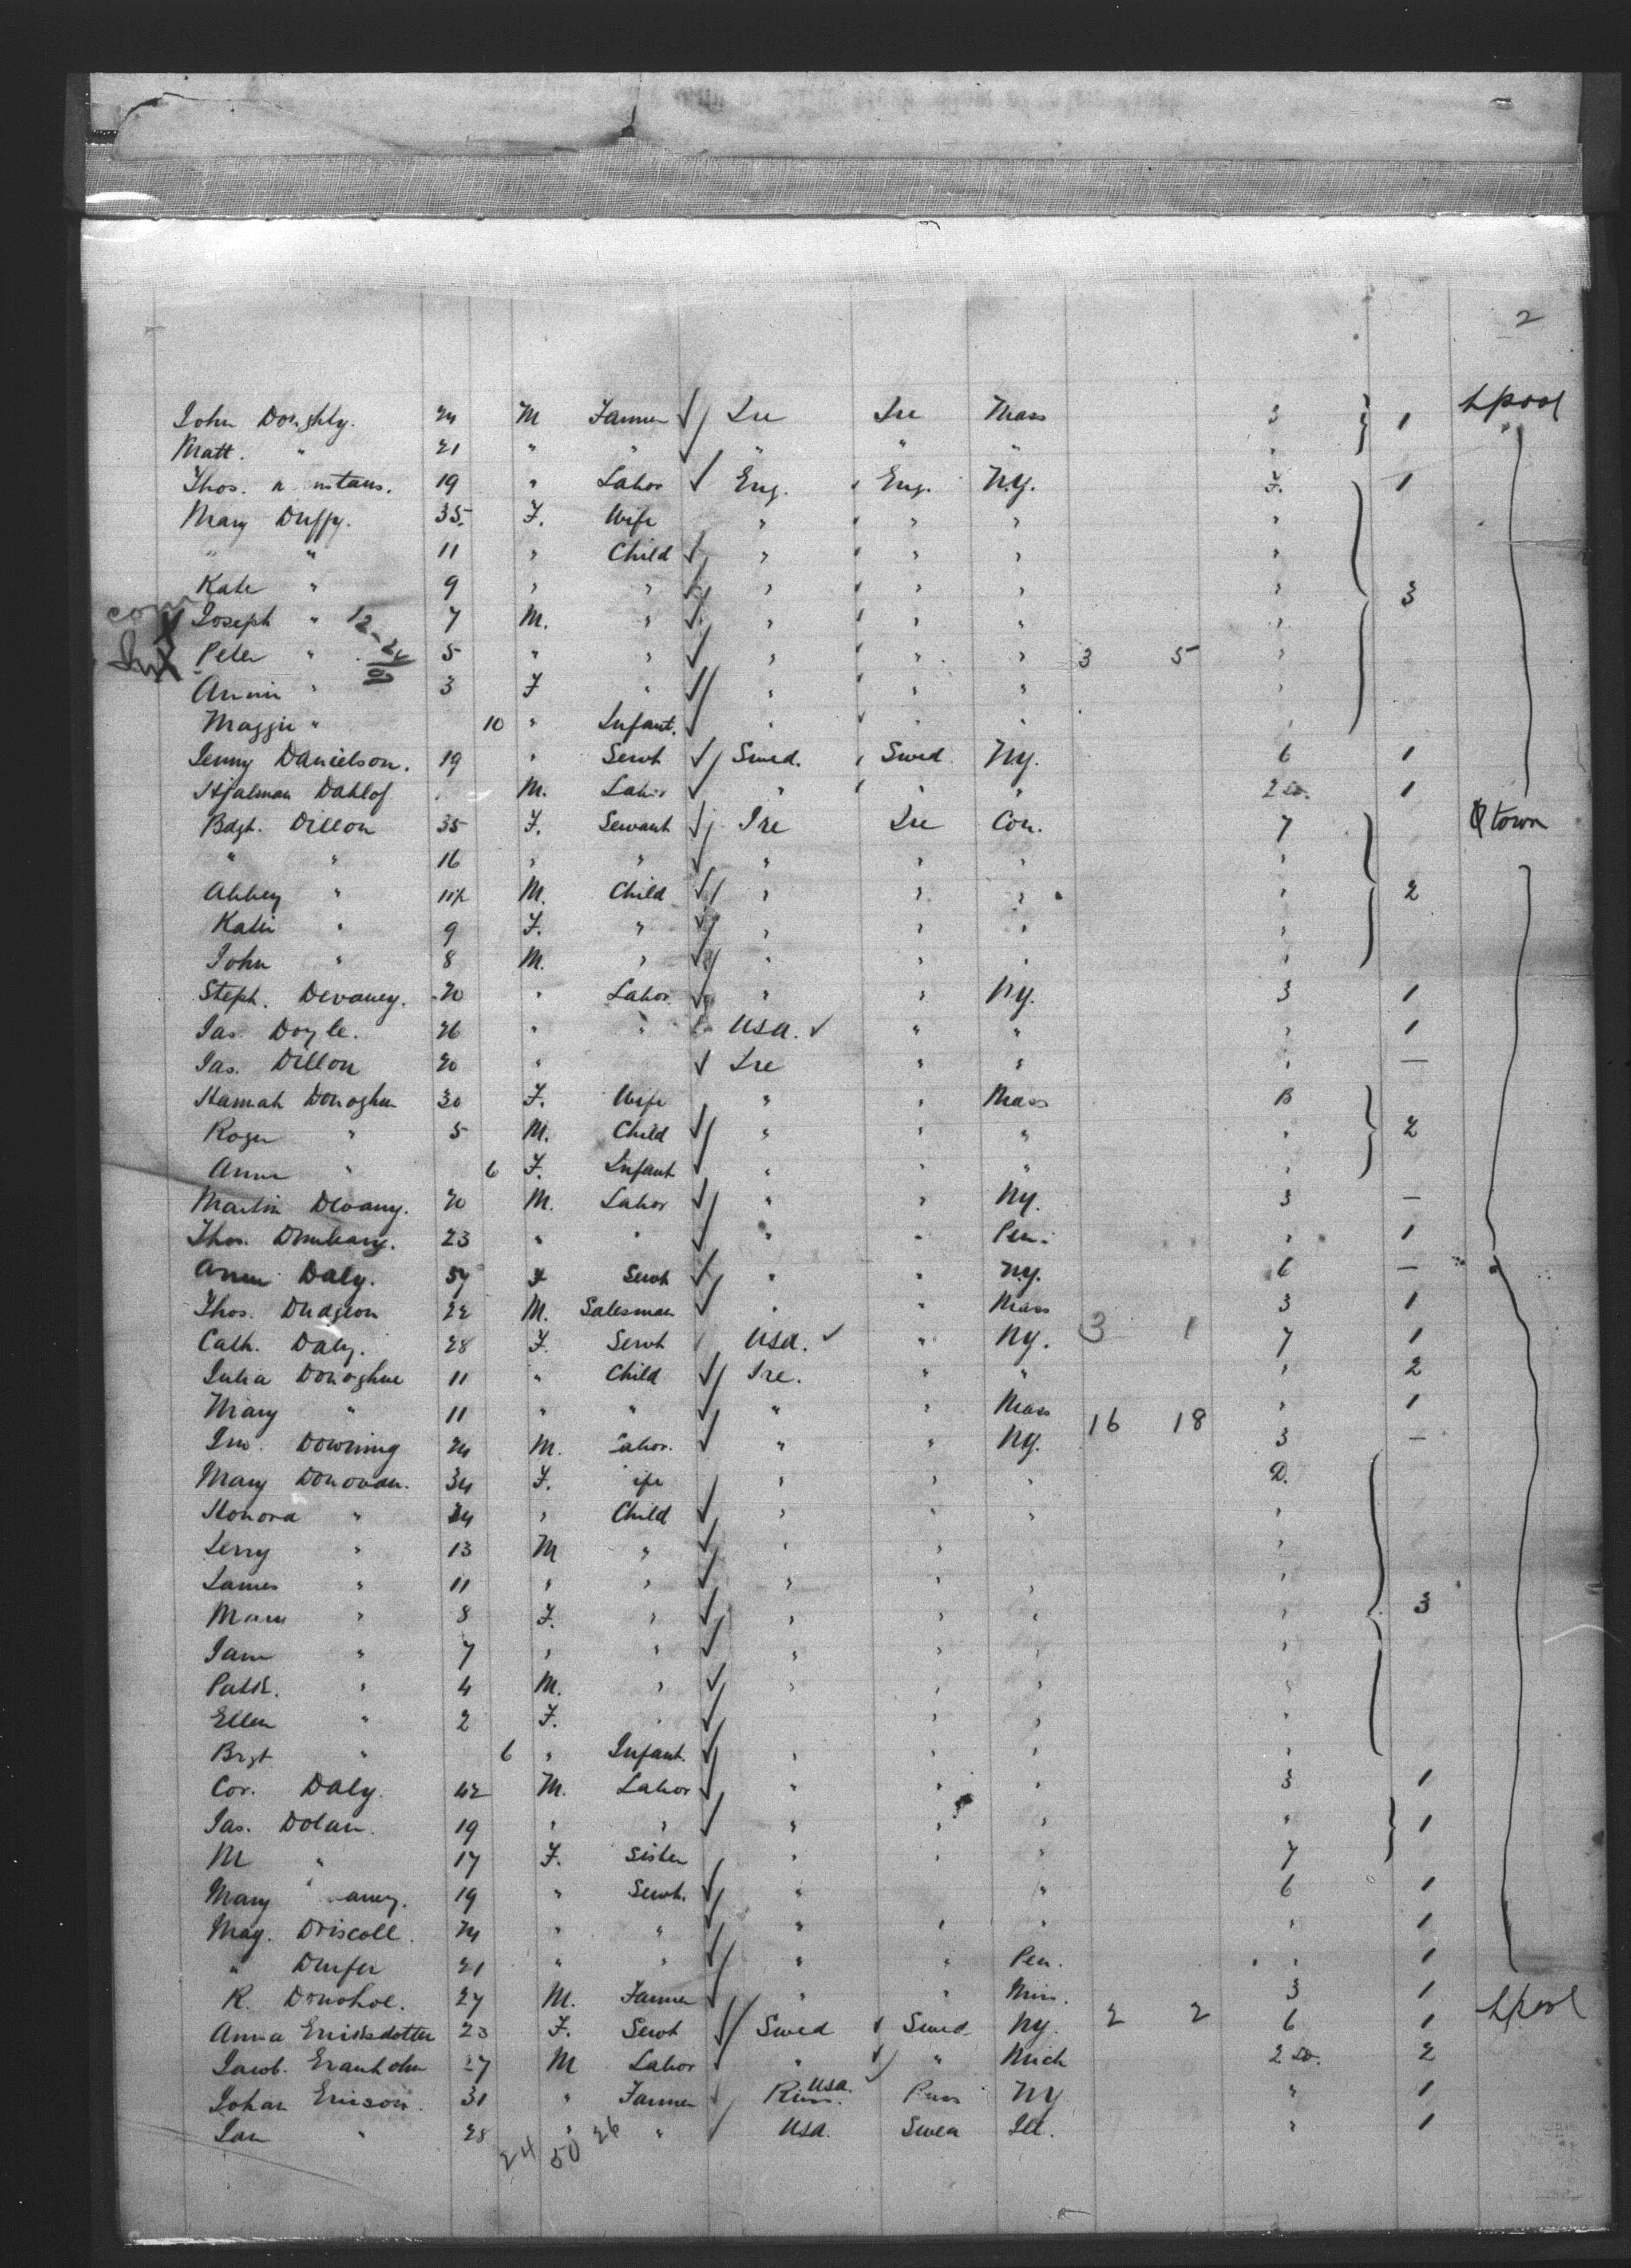 2
John Doughty. 24 M Farmer Ire Ire Mass 3 1 Lpool
Matt. " 21 " " " " " "
Thos. 19 " Labor Eng. Eng. N.Y. F. 1
Mary Duffy. 35 F. Wife " " " "
" " 11 " Child " " " "
Kate " 9 " " " " " " 3
Joseph " 7 M. " " " " "
Peter " 5 " " " " " 3 5 "
Annie " 3 F " " " " "
Maggie " 10 " Infant. " " " "
Jenny Danielson. 19 " Servt Swed. Swed. N.Y. 6 1
Hjalmar Dahlof M. Labor " " " 2 1
Bdgt. Dillon 35 F. Servant Ire Ire Con. 7 Qtown
" " 16 " " " " " "
Abbey " 11 M. Child " " " " 2
Katie " 9 F. " " " " "
John " 8 M. " " " " "
Steph. Devaney. 20 " Labor " " N.Y. 3 1
Jas. Doyle. 26 " " USA. " " " 1
Jas. Dillon 20 " Ire " " " —
Hannah Donoghue 30 F. Wife " " Mass B
Roger " 5 M. Child " " " " 2
Anna " 6 F. Infant " " " "
Martin Devany. 20 M. Labor " " N.Y. 3 —
Thos. 23 " " " " Pen. " 1
Annie Daly. 57 F Servt " " N.Y. 6 —
Thos. Dudgeon 22 M. Salesman " " Mass 3 1
Cath. Daly. 28 F. Servt USA. " N.Y. 3 1 7 1
Julia Donoghue 11 " Child Ire. " " " 2
Mary " 11 " " " " Mass " 1
Jno. Downing 24 M. Labor. " " N.Y. 16 18 3 —
Mary Donovan. 34 F. ife " " " D.
Honora " 24 " Child " " " "
Jerry " 13 M " " " " "
James " 11 " " " " " "
Mary " 8 F. " " " " " 3
Jane " 7 " " " " " "
Patk. " 4 M. " " " " "
Ellen " 2 F. " " " "
Brgt " 6 " Infant. " " " "
Cor. Daly. 42 M. Labor " " " 3 1
Jas. Dolan. 19 " " " " " " 1
M " 17 F. Sister " " " 7
Mary aney. 19 " Servt. " " 6 1
Mag. Driscoll. 24 " " " " " " 1
" 21 " " " " Pen. " 1
R. Donohoe. 27 M. Farmer " " Min. 3 1
Anna Ericksdotter 23 F. Servt Swed Swed. N.Y. 2 2 6 1 Lpool
Jacob. Granholm 27 M Labor " " Mich 2 2
Johan Ericson. 31 " Farmer Russ. USA. Russ N.Y " 1
Jan " 28 " " USA. Swea Ill. " 1
24 50 26